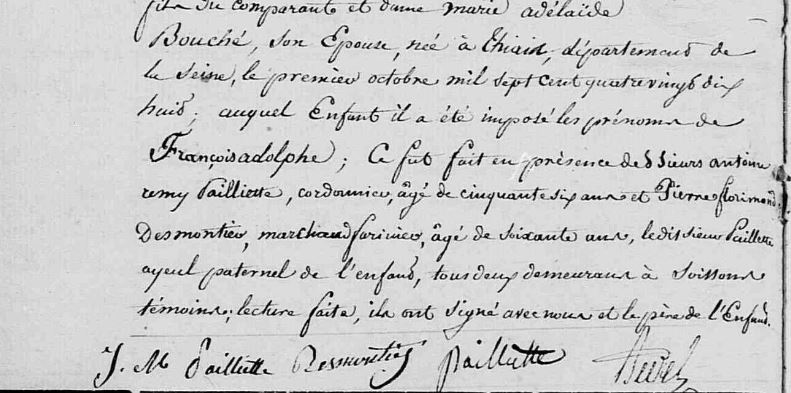 fils du comparant et dame marie adélaïde
Bouché, son Epouse, née à thiais, département de
la Seine, le premier octobre mil sept cent quatre vingt dix
huit; auquel Enfant il a été imposé les prénoms de
François adolphe; Ce fut fait en présence des Sieurs antoine
remy Pailliette, cordonnier, âgé de cinquante six ans et Pierre florimond
Desmontier, marchand farinier, âgé de soixante ans, ledit sieur Paillette
ayeul paternel de l'enfant, tous deux demeurans à Soissons
témoins; lecture faite, ils ont signé avec nous et le père de l'Enfant.
J. M. Paillette Desmontier Paillette